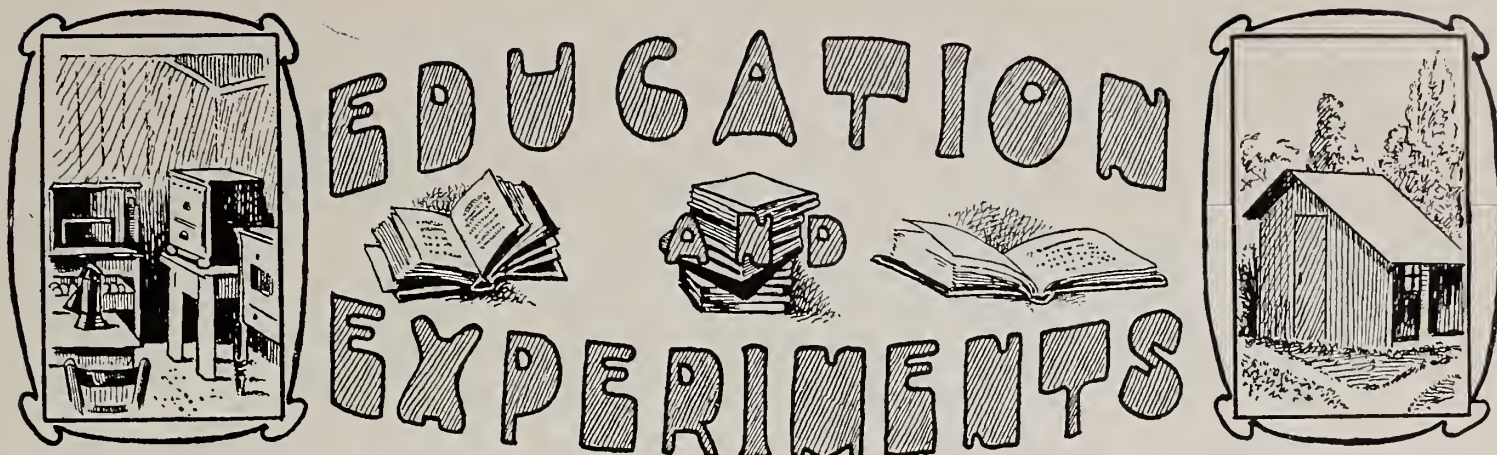 EDUCATION
AND
EXPERIMENTS